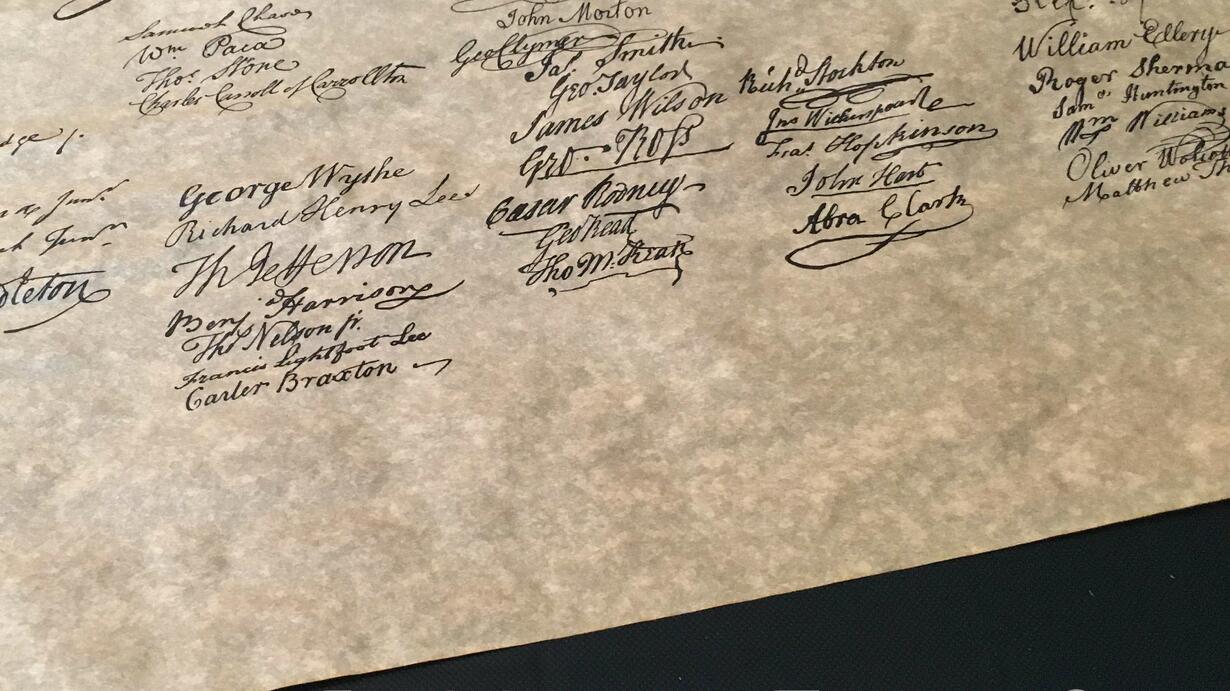 Samuel Chase
Wm. Paca
Thos. Stone
Charles Carroll of Carrollton
George Wythe
Richard Henry Lee
Th Jefferson
Benj Harrison
Thos Nelson jr.
Francis Lightfoot Lee
Carter Braxton
John Morton
Geo Clymer
Jas. Smith
Geo. Taylor
James Wilson
Geo. Ross
Caesar Rodney
Geo Read
Tho M:Kean
Richd. Stockton
Jno Witherspoon
Fras. Hopkinson
John Hart
Abra Clark
William Ellery
Roger Sherma
Saml. Huntington
Wm Williams
Oliver Wolcott
Matthew